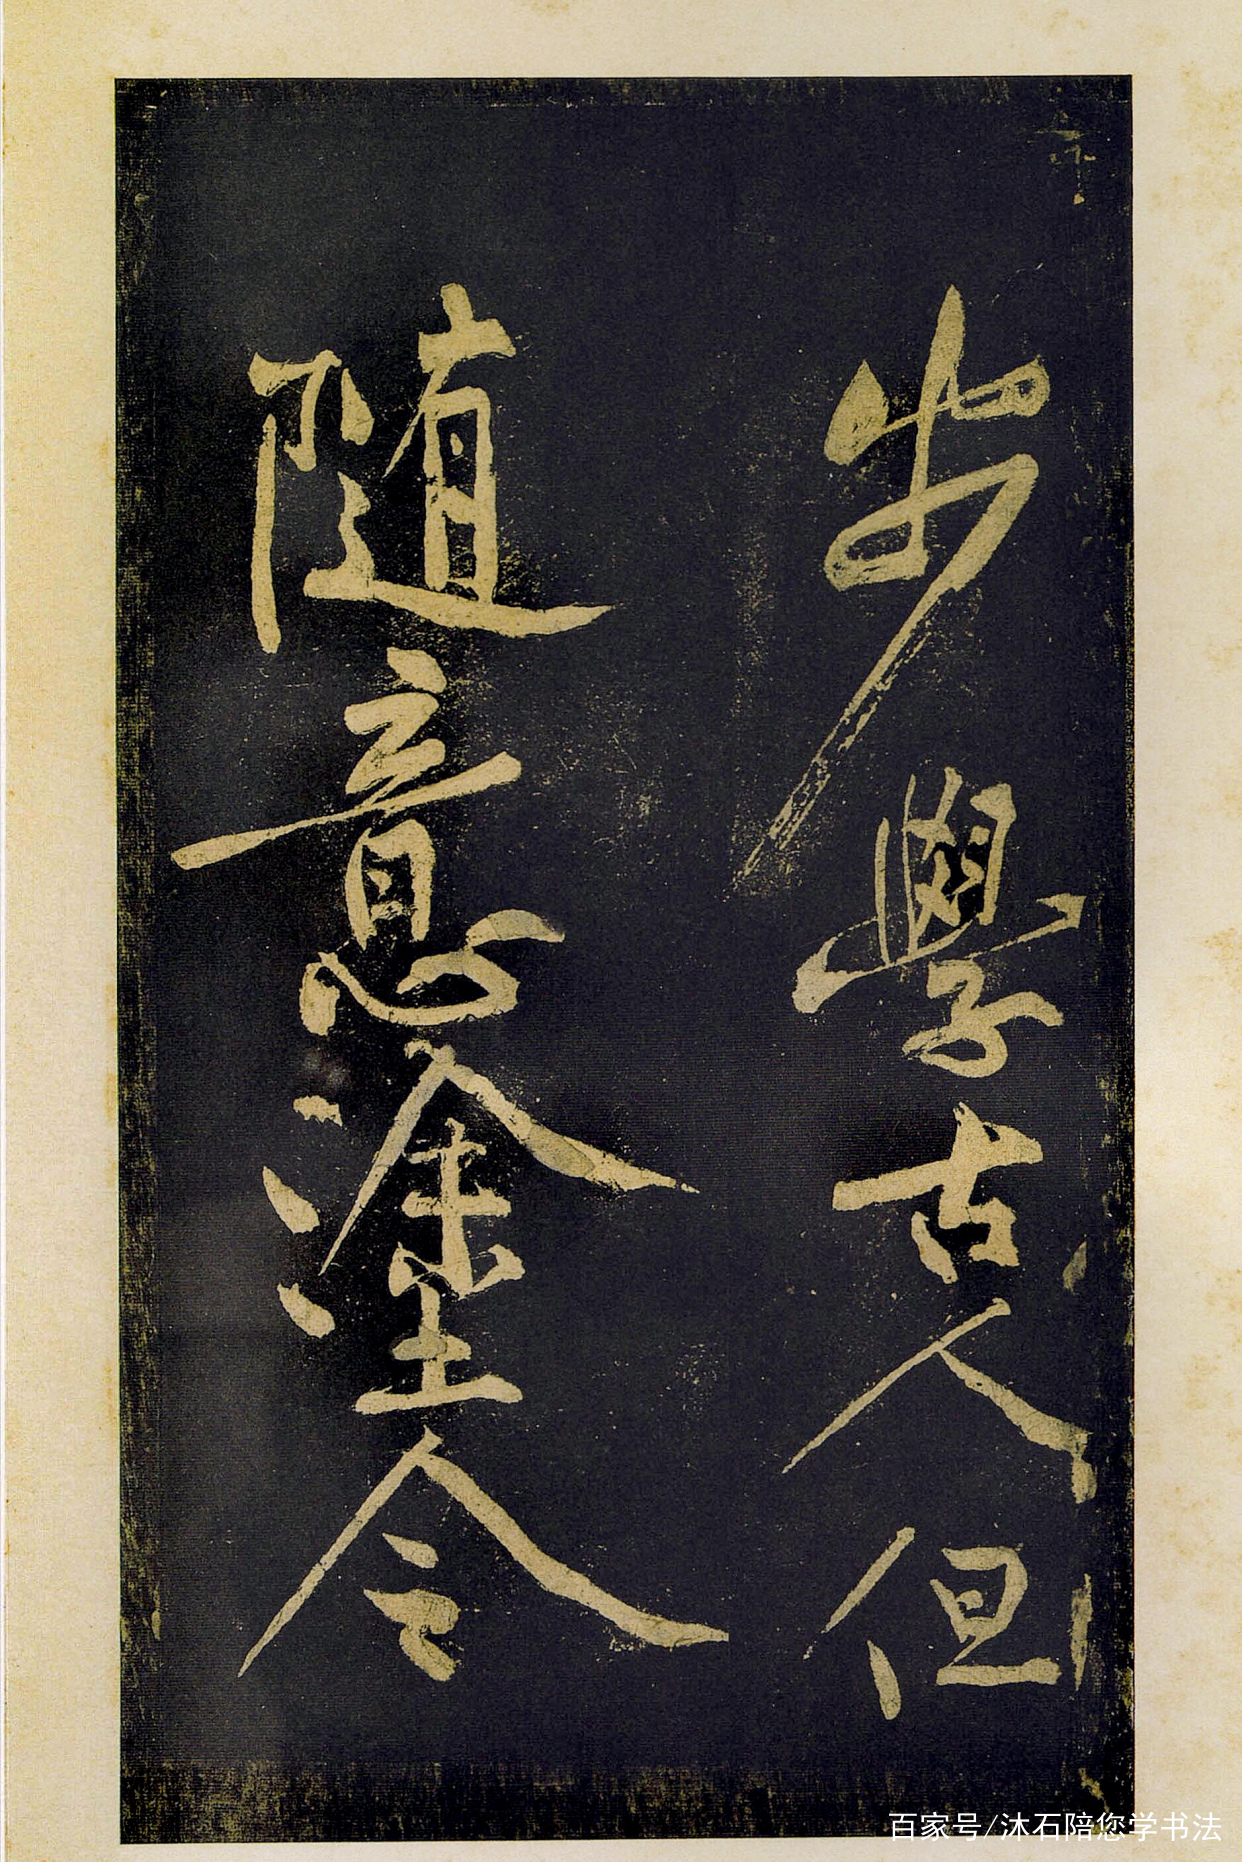 步學古人但
随意塗今
百家号/沐石陪您学书法